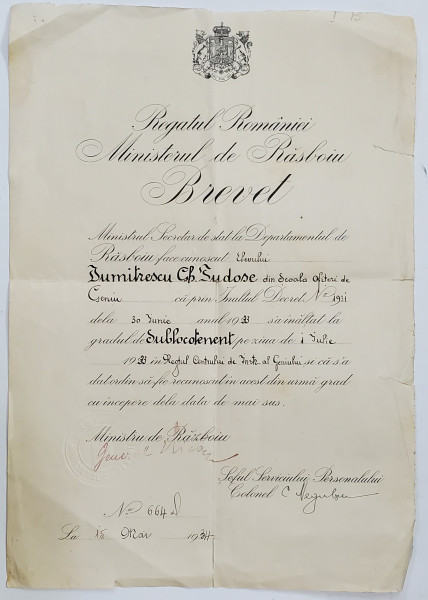 Regatul României
Ministerul de Răsboiu
Brevet
Ministrul Secretar de stat la Departamentul de
Răsboiu face cunoscut Elevului
Dumitrescu Gh. Tudose din Scoala Ofiteri de
Geniu că prin Inaltul Decret No 1921
dela 30 Iunie anul 1933 s'a înăltat la
gradul de Sublocotenent pe ziua de 1 Iulie
1933 in Regtul Centrului de Instr. al Geniului si că s'a
dat ordin să fie recunoscut in acest din urmă grad
cu incepere dela data de mai sus.
Ministru de Războiu
Gener.
Seful Serviciului Personalului
Colonel C
No 664
La 15 Mai 1934